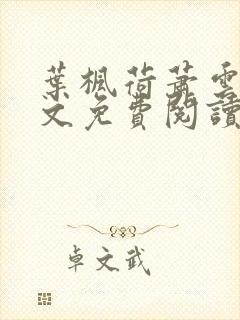 葉楓荷蕭雲
文免費閱讀
卓文武